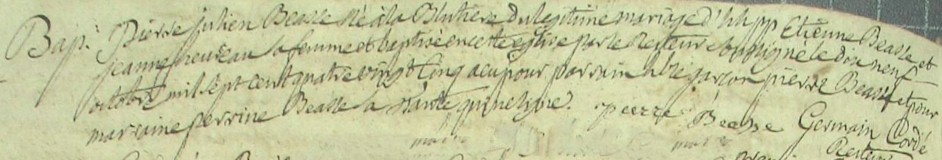 Bap. Pierre Julien Beasse né à la Blutière du legitime mariage d' hh pp Etienne Beasse et
jeanne heudeau sa femme et baptisé en cette eglise par le Recteur soussigné le dix neuf
octobre mil sept cent quatre vingt Cinq a eu pour parrain h garçon pierre Beasse et pour
marraine perrine Beasse sa tante
pierre Beasse Germain Cordé
Recteur